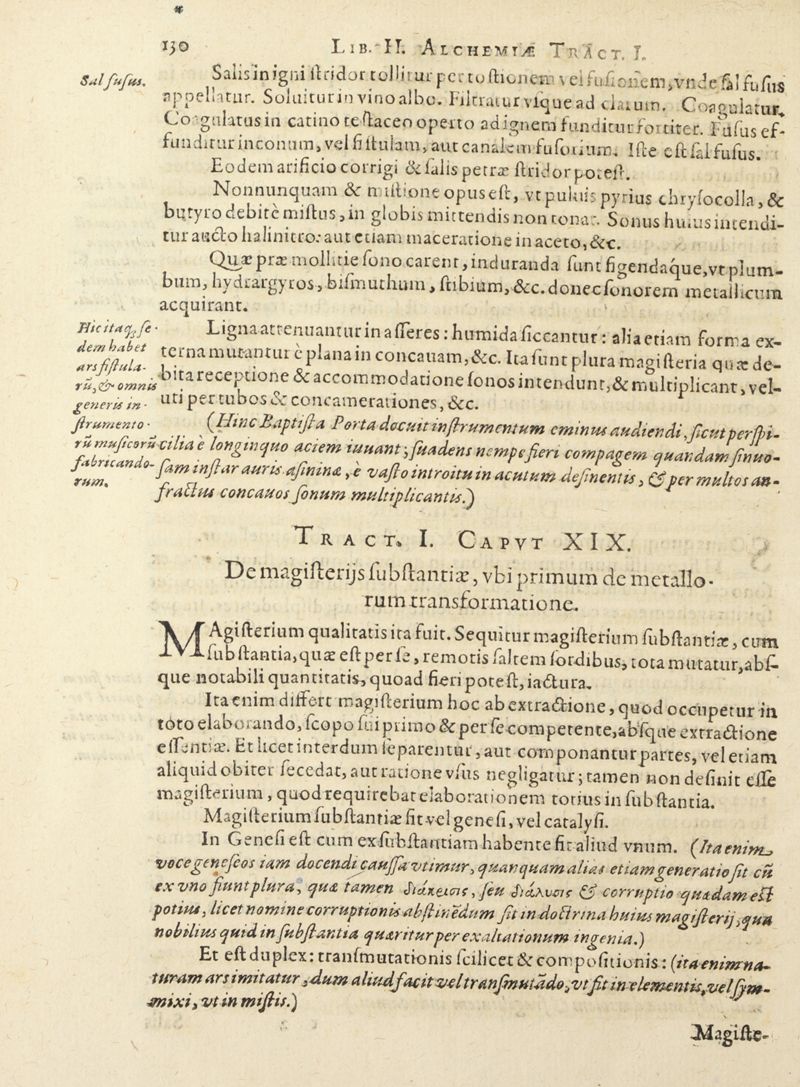 130 LIB. II. ALCHEMIÆ TRACT. I.
Sal fusus.
Salis in igni stridor tollitur per tostionem vel fusionem, vnde sal fusus
appellatur. Soluitur in vino albo. Filtratur vsque ad clarum. Coagulatur.
Coagulatus in catino testaceo operto ad ignem funditur fortiter. Fusus ef-
funditur in conum, vel fistulam, aut canalem fusorium. Iste est sal fusus.
Eodem arificio corrigi & salis petræ stridor potest.
Nonnunquam & mistione opus est, vt puluis pyrius chrysocolla, &
butyro debite mistus, in globis mittendis non tonat. Sonus huius intendi-
tur aucto halinitro: aut etiam maceratione in aceto, &c.
Quæ præ mollitie sono carent, induranda sunt figendaque, vt plum-
bum, hydrargyros, bismuthum, stibium, &c. donec sonorem metallicum
acquirant.
Hic itaq; se-
dem habet
ars fistula-
rũ, & omnis
generis in-
strumento-
rũ musicorũ
fabricando-
rum.
Ligna attenuantur in asseres: humida siccantur: alia etiam forma ex-
terna mutantur è plana in concauam, &c. Ita sunt plura magisteria quæ de-
bita receptione & accommodatione sonos intendunt, & multiplicant, vel-
uti per tubos & concamerationes, &c.
(Hinc Baptista Porta docuit instrumentum eminus audiendi, sicut perspi-
cilia è longinquo aciem iuuant; suadens nempe fieri compagem quandam sinuo-
sam instar auris asininæ, è vasto introitu in acutum desinentis, & per multos an-
fractus concauos sonum multiplicantis.)
TRACT. I. CAPVT XIX.
De magisterijs substantiæ, vbi primum de metallo-
rum transformatione.
MAgisterium qualitatis ita fuit. Sequitur magisterium substantiæ, cum
substantia, quæ est per se, remotis saltem sordibus, tota mutatur, abs-
que notabili quantitatis, quoad fieri potest, iactura.
Ita enim differt magisterium hoc ab extractione, quod occupetur in
toto elaborando, scopo sui primo & per se competente, absque extractione
essentiæ. Et licet interdum separentur, aut componantur partes, vel etiam
aliquid obiter secedat, aut ratione vsus negligatur; tamen non definit esse
magisterium, quod requirebat elaborationem totius in substantia.
Magisterium substantiæ fit vel genesi, vel catalysi.
In Genesi est cum ex substantiam habente fit aliud vnum. (Ita enim
voce geneseos iam docendi caussa vtimur, quanquam alias etiam generatio fit cũ
ex vno fiunt plura, quæ tamen διάκεισις, seu διάλυσις & corruptio quædam est
potius, licet nomine corruptionis abstinẽdum sit in doctrina huius magisterij, qua
nobilius quid in substantia quæritur per exaltationum ingenia.)
Et est duplex: transmutationis scilicet & compositionis: (ita enim na-
turam ars imitatur, dum aliud facit vel transmutãdo, vt fit in elementis, vel sym-
mixi, vt in mistis.)
Magiste-